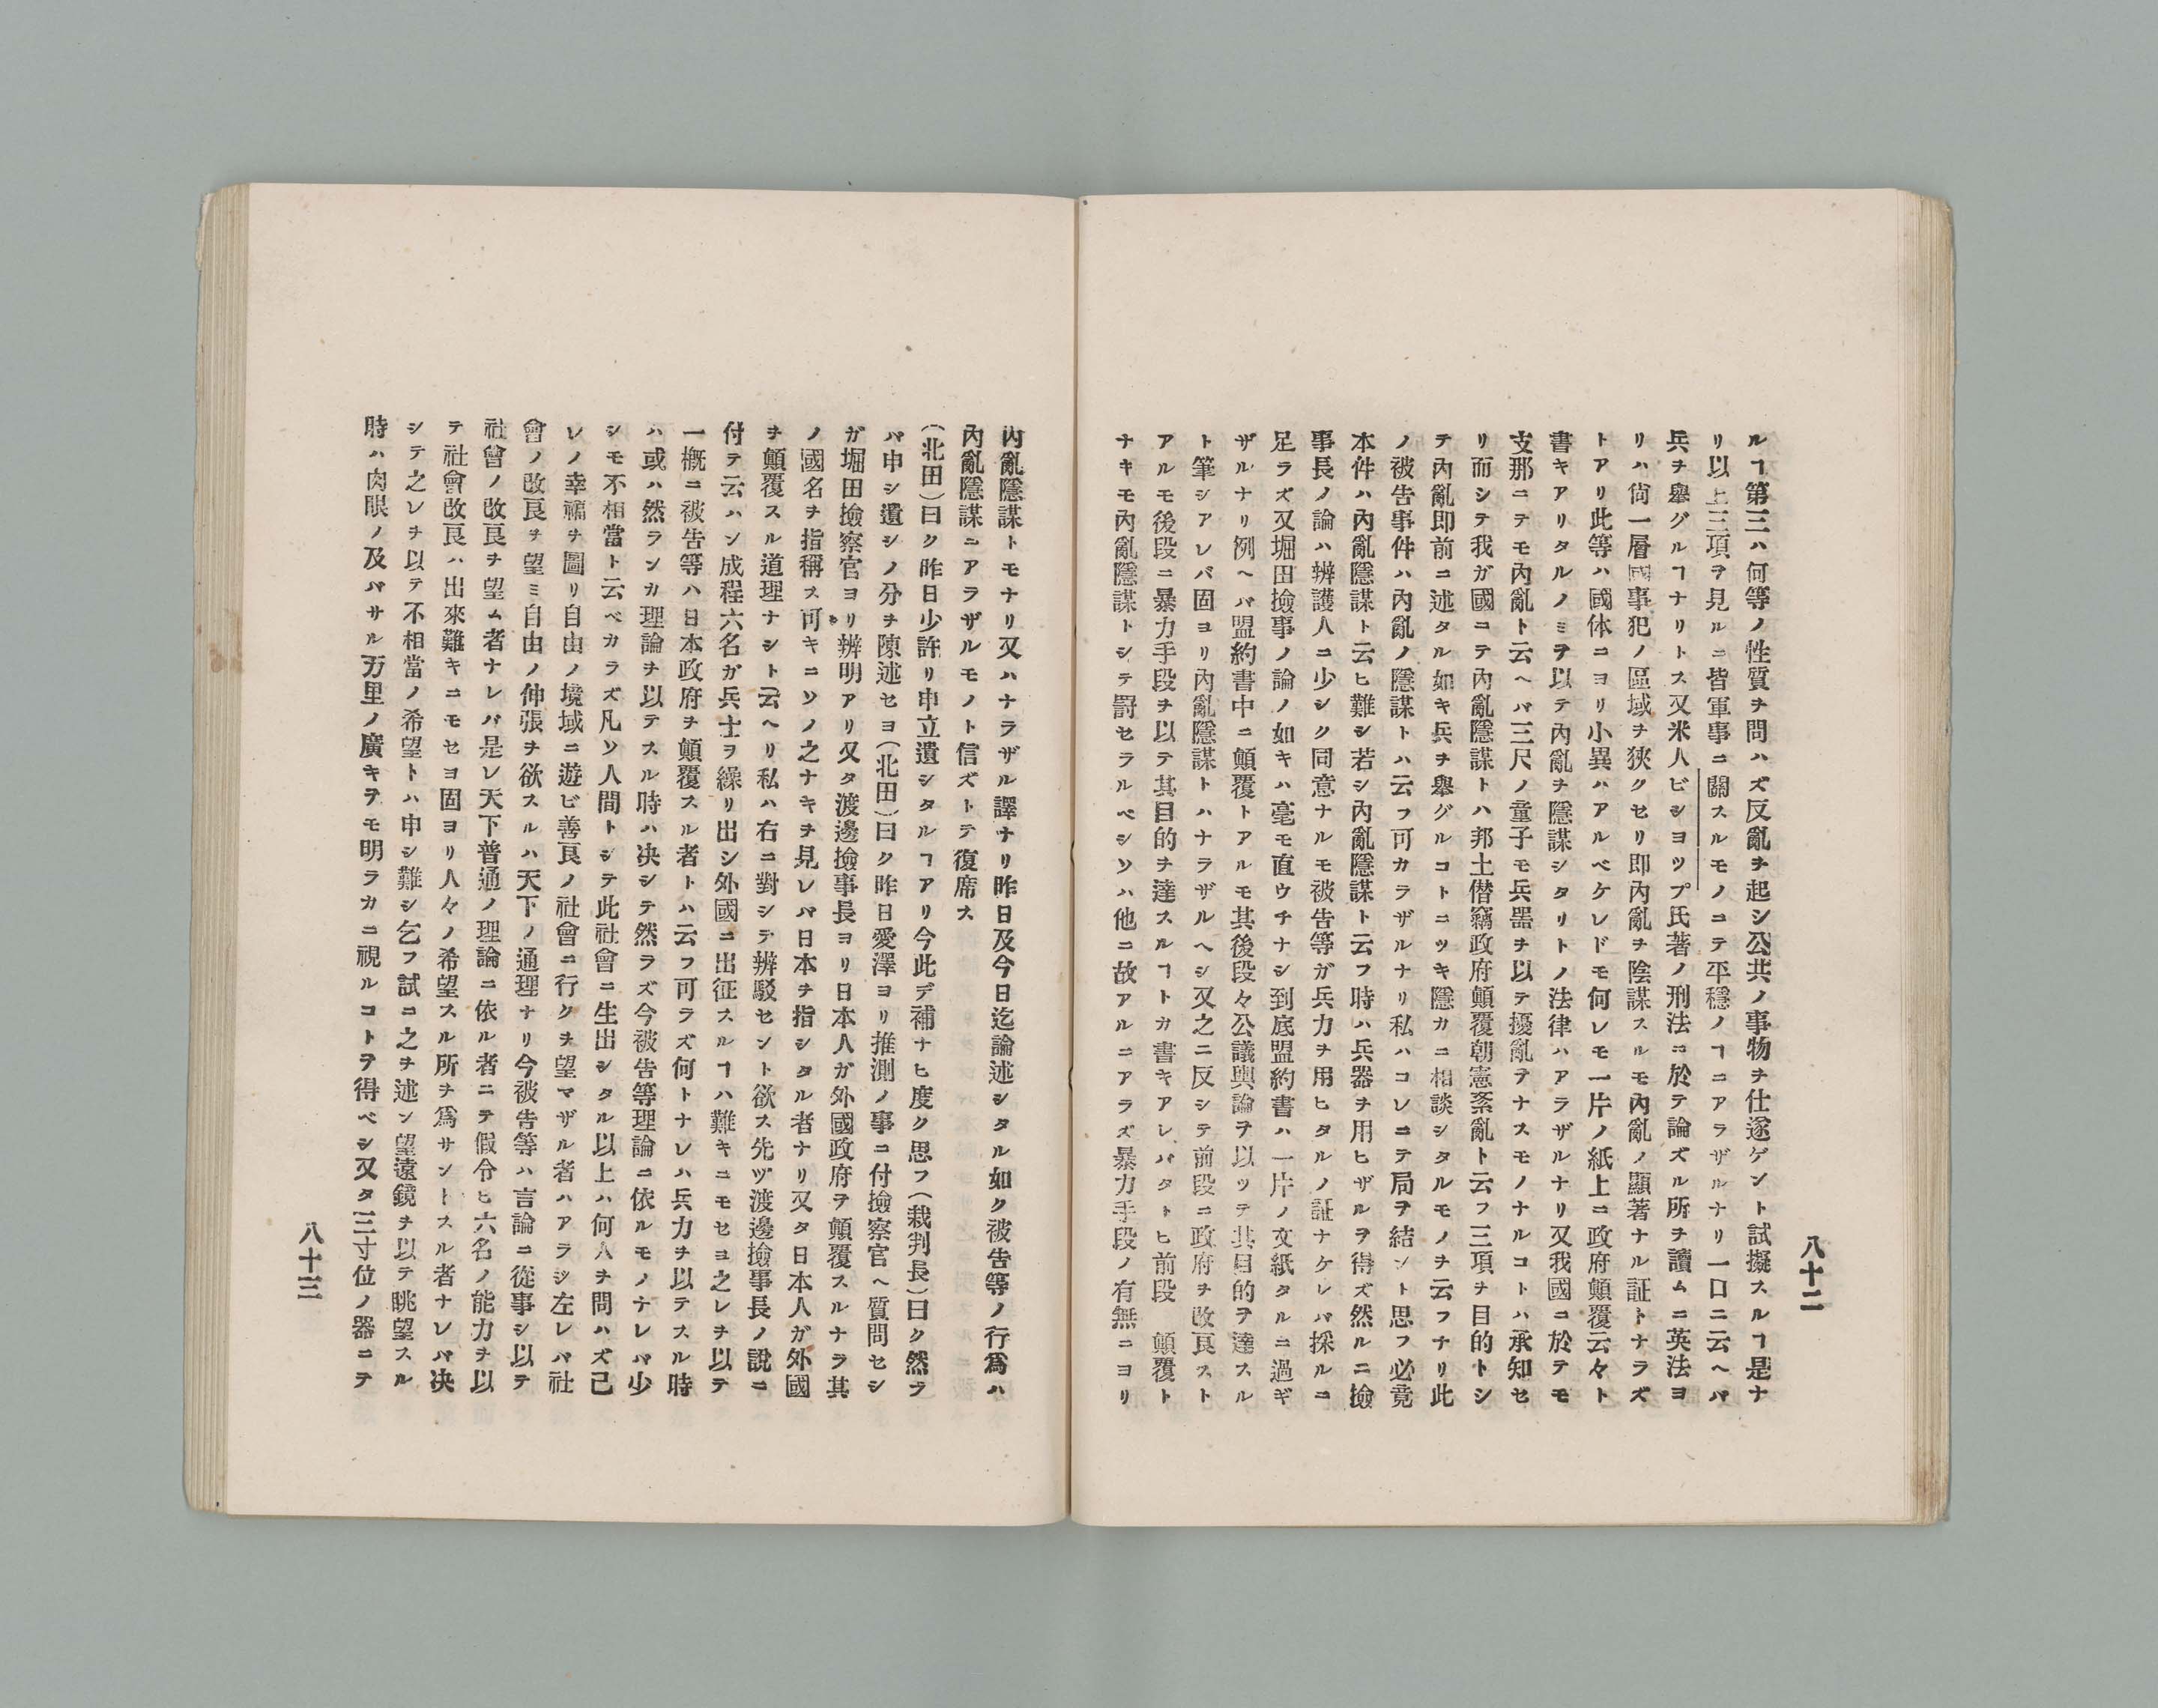 八十二
ルヿ第三ハ何等ノ性質ヲ問ハズ反亂ヲ起シ公共ノ事物ヲ仕遂ゲント試擬スルヿ是ナ
リ以上三項ヲ見ルニ皆軍事ニ關スルモノニテ平穩ノヿニアラザルナリ一口ニ云ヘバ
兵ヲ舉グルヿナリトス又米人ビショップ氏著ノ刑法ニ於テ論ズル所ヲ讀ムニ英法ヨ
リハ尙一層國事犯ノ區域ヲ狹クセリ即內亂ヲ陰謀スルモ內亂ノ顯著ナル証トナラズ
トアリ此等ハ國体ニヨリ小異ハアルベケレドモ何レモ一片ノ紙上ニ政府顛覆云々ト
書キアリタルノミヲ以テ內亂ヲ隱謀シタリトノ法律ハアラザルナリ又我國ニ於テモ
支那ニテモ內亂ト云ヘバ三尺ノ童子モ兵噐ヲ以テ擾亂ヲナスモノナルコトハ承知セ
リ而シテ我ガ國ニテ內亂隱謀トハ邦土僭竊政府顛覆朝憲紊亂ト云フ三項ヲ目的トシ
テ內亂即前ニ述タル如キ兵ヲ舉グルコトニツキ隱カニ相談シタルモノヲ云フナリ此
ノ被告事件ハ內亂ノ隱謀トハ云フ可カラザルナリ私ハコレニテ局ヲ結ント思フ必竟
本件ハ內亂隱謀ト云ヒ難シ若シ內亂隱謀ト云フ時ハ兵器ヲ用ヒザルヲ得ズ然ルニ撿
事長ノ論ハ辨護人ニ少シク同意ナルモ被告等ガ兵力ヲ用ヒタルノ証ナケレバ採ルニ
足ラズ又堀田撿事ノ論ノ如キハ毫モ直ウチナシ到底盟約書ハ一片ノ文紙タルニ過ギ
ザルナリ例ヘバ盟約書中ニ顛覆トアルモ其後段々公議輿論ヲ以ッテ其目的ヲ達スル
ト筆シアレバ固ヨリ內亂隱謀トハナラザルヘシ又之ニ反シテ前段ニ政府ヲ改良スト
アルモ後段ニ暴力手段ヲ以テ其目的ヲ達スルヿトカ書キアレバタトヒ前段 顛覆ト
ナキモ內亂隱謀トシテ罰セラルベシソハ他ニ故アルニアラズ暴力手段ノ有無ニヨリ
內亂隱謀トモナリ又ハナラザル譯ナリ昨日及今日迄論述シタル如ク被告等ノ行爲ハ
內亂隱謀ニアラザルモノト信ズトテ復席ス
（北田）曰ク昨日少許リ申立遺シタルヿアリ今此デ補ナヒ度ク思フ（裁判長）曰ク然ラ
バ申シ遺シノ分ヲ陳述セヨ（北田）曰ク昨日愛澤ヨリ推測ノ事ニ付撿察官ヘ質問セシ
ガ堀田撿察官ヨリ辨明アリ又タ渡邊撿事長ヨリ日本人ガ外國政府ヲ顛覆スルナラ其
ノ國名ヲ指稱ス可キニソノ之ナキヲ見レバ日本ヲ指シタル者ナリ又タ日本人ガ外國
ヲ顛覆スル道理ナシト云ヘリ私ハ右ニ對シテ辨駁セント欲ス先ヅ渡邊撿事長ノ說ニ
付テ云ハン成程六名ガ兵士ヲ繰リ出シ外國ニ出征スルヿハ難キニモセヨ之レヲ以テ
一概ニ被告等ハ日本政府ヲ顛覆スル者トハ云フ可ラズ何トナレハ兵力ヲ以テスル時
ハ或ハ然ランカ理論ヲ以テスル時ハ決シテ然ラズ今被告等理論ニ依ルモノナレバ少
シモ不相當ト云ベカラズ凡ソ人間トシテ此社會ニ生出シタル以上ハ何人ヲ問ハズ己
レノ幸福ヲ圖リ自由ノ境域ニ遊ビ善良ノ社會ニ行クヲ望マザル者ハアラジ左レバ社
會ノ改良ヲ望ミ自由ノ伸張ヲ欲スルハ天下ノ通理ナリ今被告等ハ言論ニ從事シ以テ
社會ノ改良ヲ望ム者ナレバ是レ天下普通ノ理論ニ依ル者ニテ假令ヒ六名ノ能力ヲ以
テ社會改良ハ出來難キニモセヨ固ヨリ人々ノ希望スル所ヲ爲サントスル者ナレバ決
シテ之レヲ以テ不相當ノ希望トハ申シ難シ乞フ試ニ之ヲ述ン望遠鏡ヲ以テ眺望スル
時ハ肉眼ノ及バサル万里ノ廣キヲモ明ラカニ視ルコトヲ得ベシ又タ三寸位ノ器ニテ
八十三